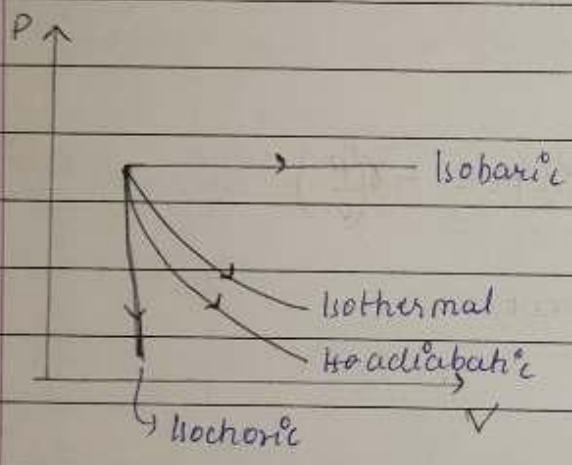 P
Isobaric
Isothermal
adiabatic
Isochoric
V